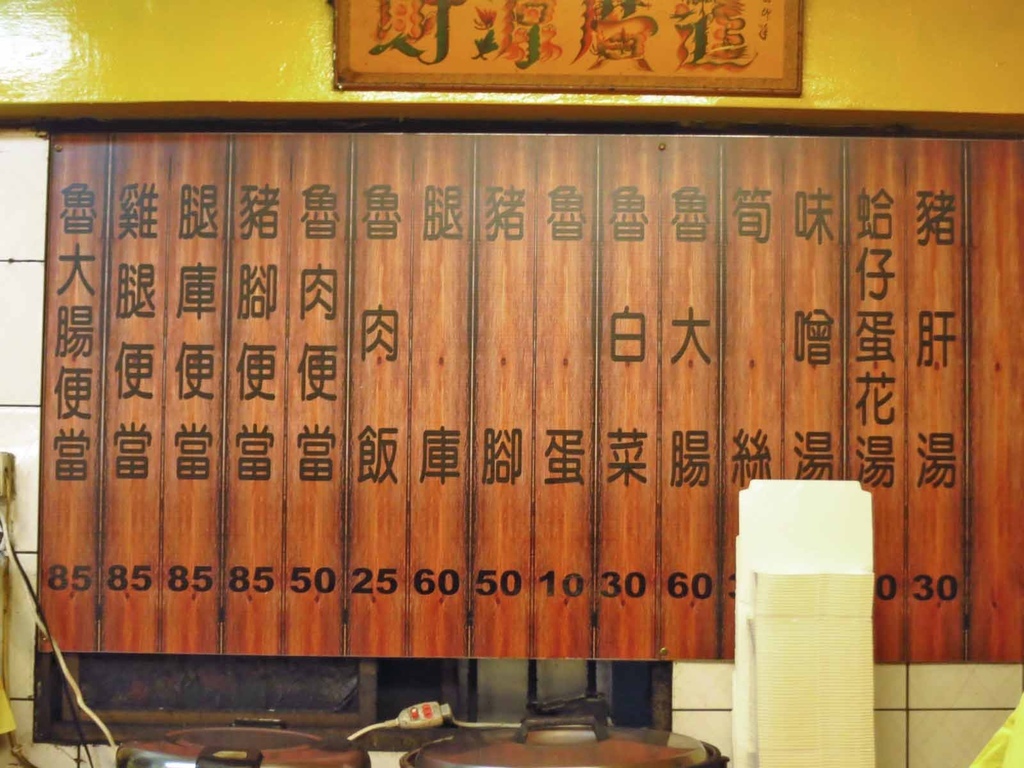 財源廣進
魯大腸便當 85
雞腿便當 85
腿庫便當 85
豬腳便當 85
魯肉便當 50
魯肉飯 25
腿庫 60
豬腳 50
魯蛋 10
魯白菜 30
魯大腸 60
筍絲
味噌湯
蛤仔蛋花湯
豬肝湯 30